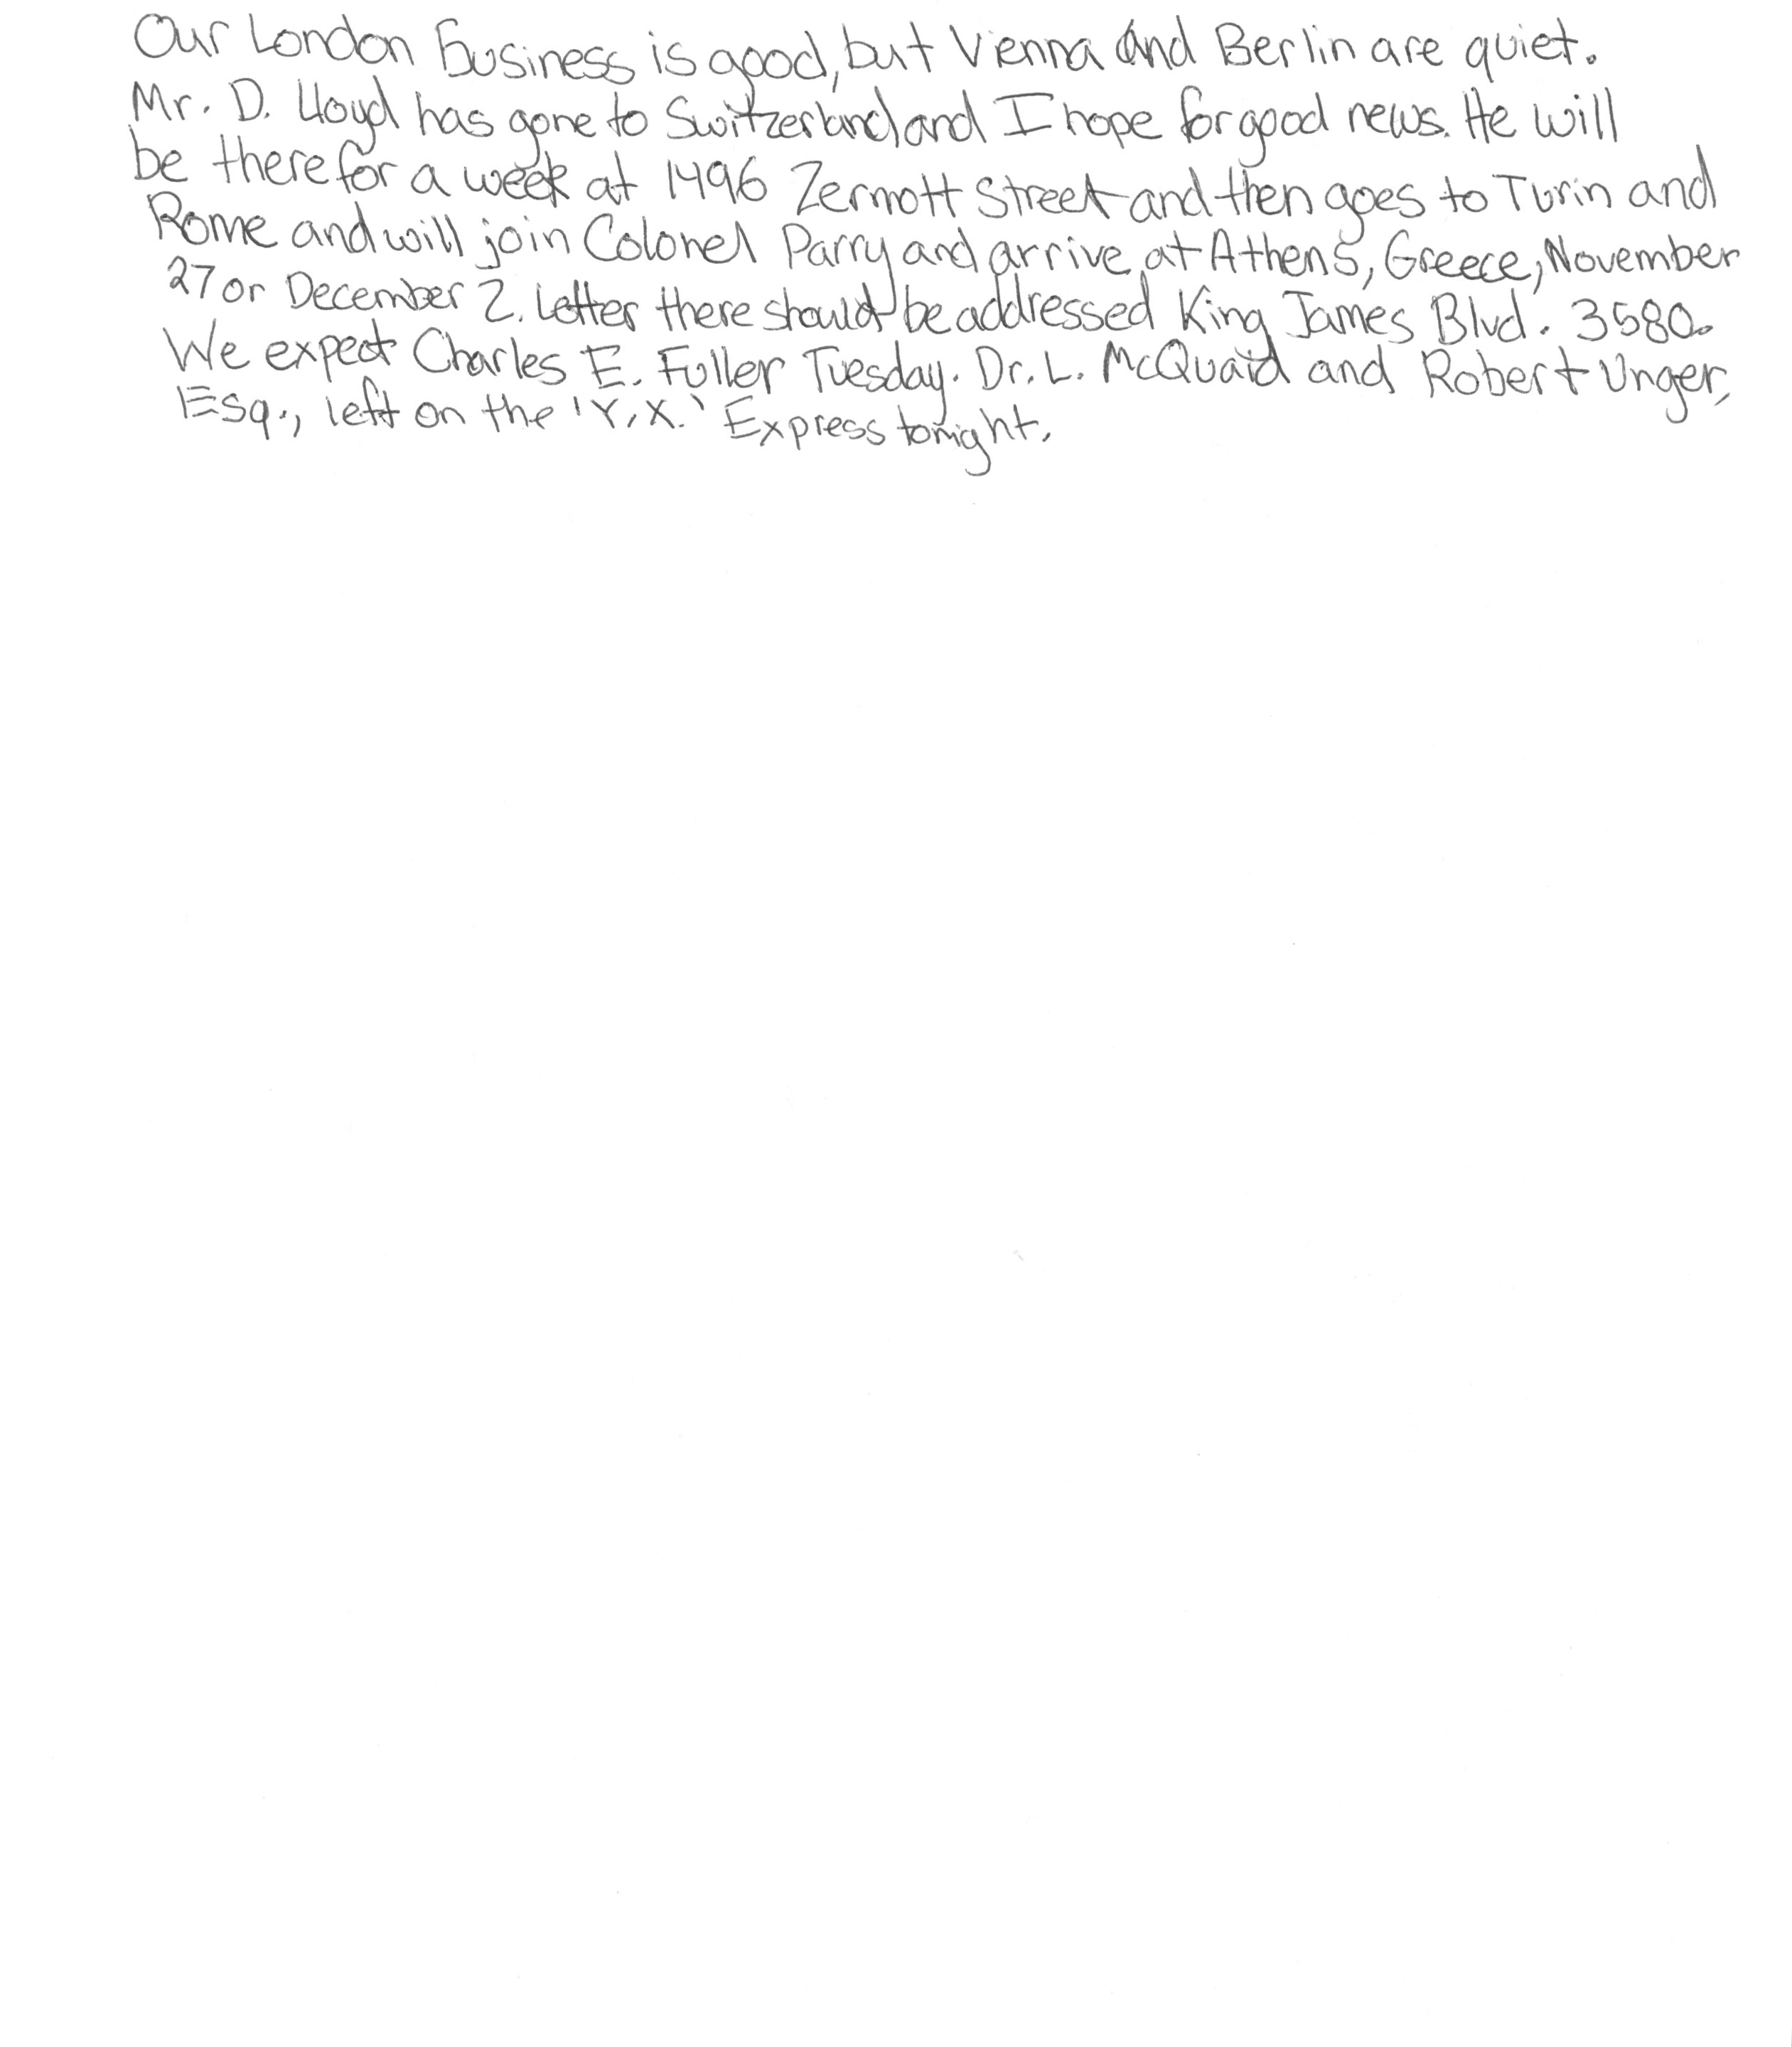 Our London business is good, but Vienna and Berlin are quiet.
Mr. D. Lloyd has gone to Switzerland and I hope for good news. He will
be there for a week at 1496 Zermott Street and then goes to Turin and
Rome and will join Colonel Parry and arrive at Athens, Greece, November
27 or December 2. Letter there should be addressed King James Blvd. 3580.
We expect Charles E. Fuller Tuesday. Dr. L. McQuaid and Robert Unger,
Esq., left on the 'Y.X.' Express tonight.